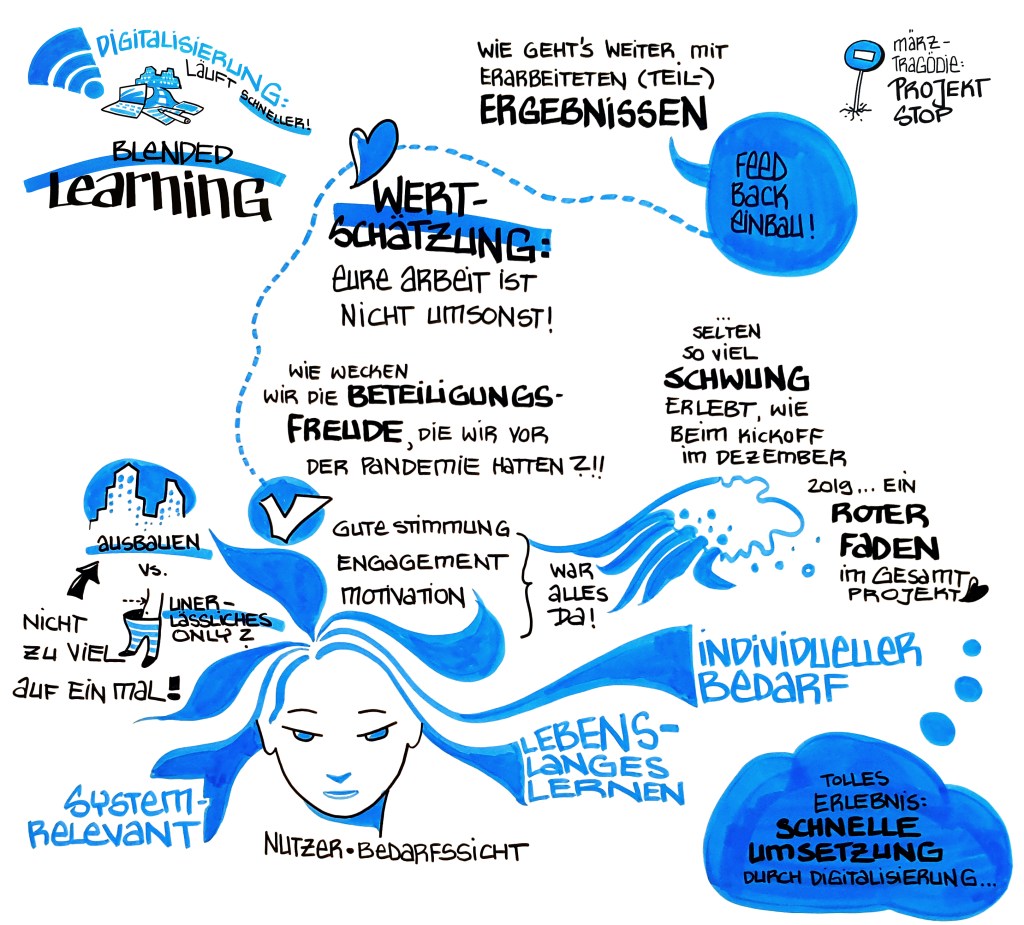 DIGITALISIERUNG:
LÄUFT
SCHNELLER!
BLENDED
LEARNING
WIE GEHT'S WEITER MIT
ERARBEITETEN (TEIL-)
ERGEBNISSEN
MÄRZ-
TRAGÖDIE:
PROJEKT
STOP
FEED
BACK
EINBAU!
WERT-
SCHÄTZUNG:
EURE ARBEIT IST
NICHT UMSONST!
WIE WECKEN
WIR DIE BETEILIGUNGS-
FREUDE, DIE WIR VOR
DER PANDEMIE HATTEN?!!
...
SELTEN
SO VIEL
SCHWUNG
ERLEBT, WIE
BEIM KICKOFF
IM DEZEMBER
2019... EIN
ROTER
FADEN
IM GESAMT
PROJEKT
AUSBAUEN
VS.
UNER-
LÄSSLICHES
ONLY?
NICHT
ZU VIEL
AUF EIN MAL!
GUTE STIMMUNG
ENGAGEMENT
MOTIVATION
WAR
ALLES
DA!
INDIVIDUELLER
BEDARF
LEBENS-
LANGES
LERNEN
SYSTEM-
RELEVANT
NUTZER•BEDARFSSICHT
TOLLES
ERLEBNIS:
SCHNELLE
UMSETZUNG
DURCH DIGITALISIERUNG...